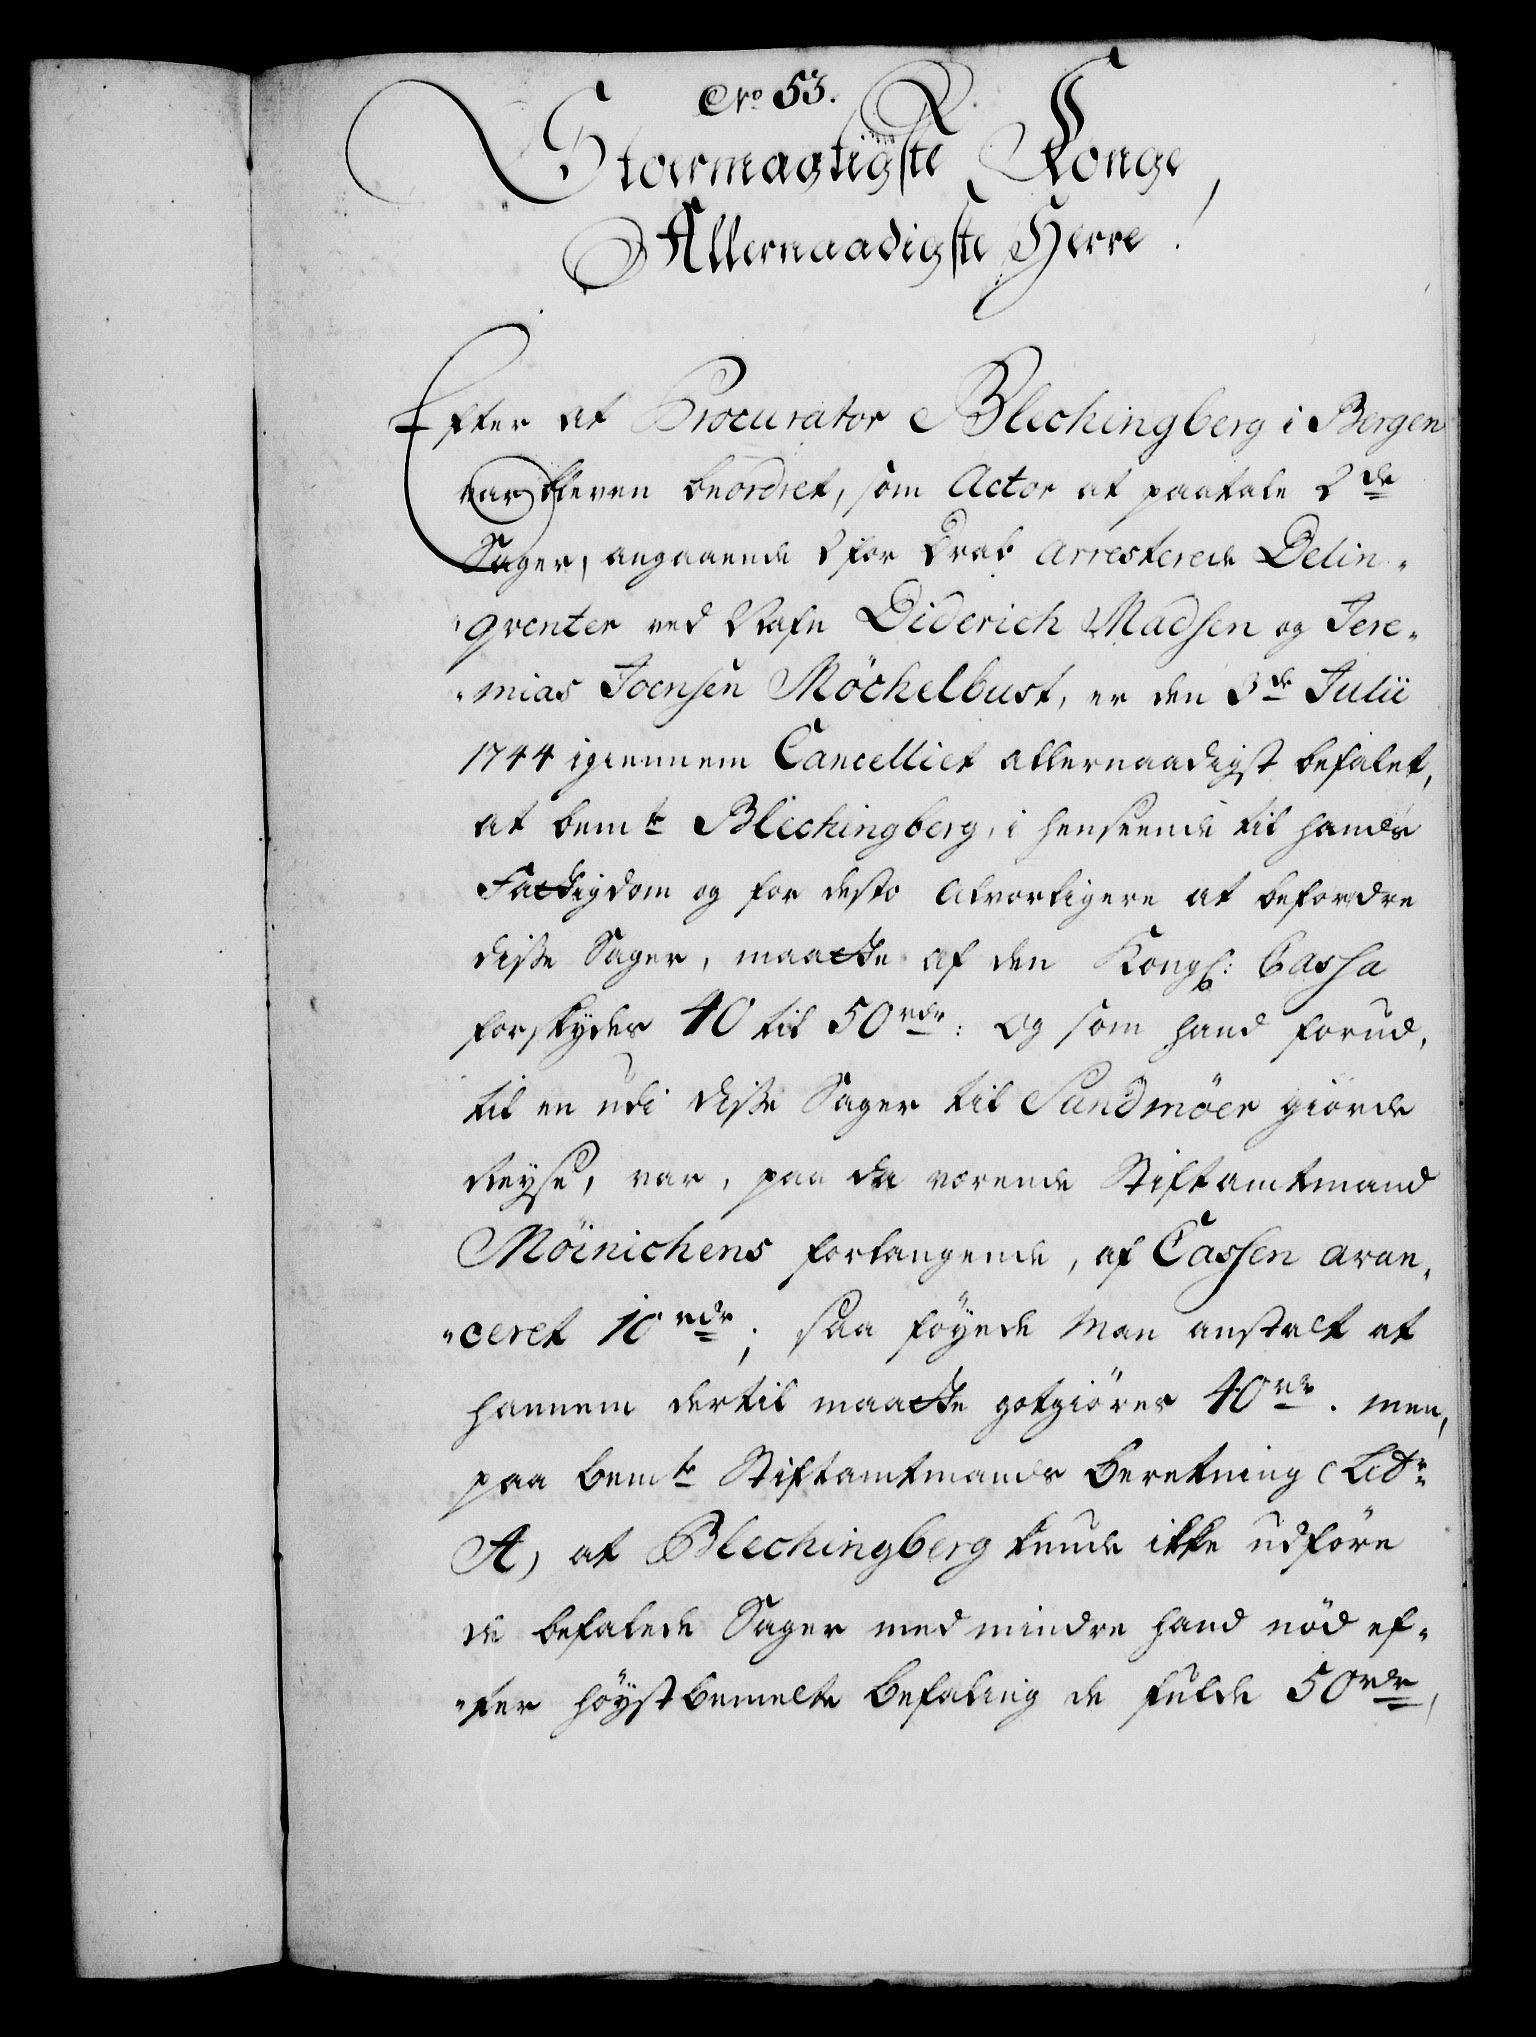 No 53.
Stoermagtigste Konge,
Allernaadigste Herre!
Efter at Procurator Blechingberg i Bergen
var bleven beordret, som Actor at paatale 2de
Sager, angaaende 2 for Drab arresterede Delin-
qventer ved Nafn Diderich Madsen og Jere-
mias Joensen Möchelbust, er den 3de Julii
1744 igiennem Cancelliet allernaadigst befalet,
at bemte Blechingberg, i henseende til hands
Fattigdom og for desto alvorligere at befordre
disse Sager, maatte af den Kongl: Cassa
forskydes 40 til 50 rdr: Og som hand forud,
til en udi disse Sager til Sundmöer giorde
Reyse, var, paa da værende Stiftamtmand
Möinichens forlangende, af Cassen avan-
ceret 10 rdr; saa föyede man anstalt at
hannem dertil maatte gotgiöres 40 rdr. men,
paa bemte Stiftamtmands Beretning (Litr:
A) at Blechingberg kunde ikke udföre
de befalede Sager med mindre hand nöd ef-
ter höystbemelte Befaling de fulde 50 rdr,